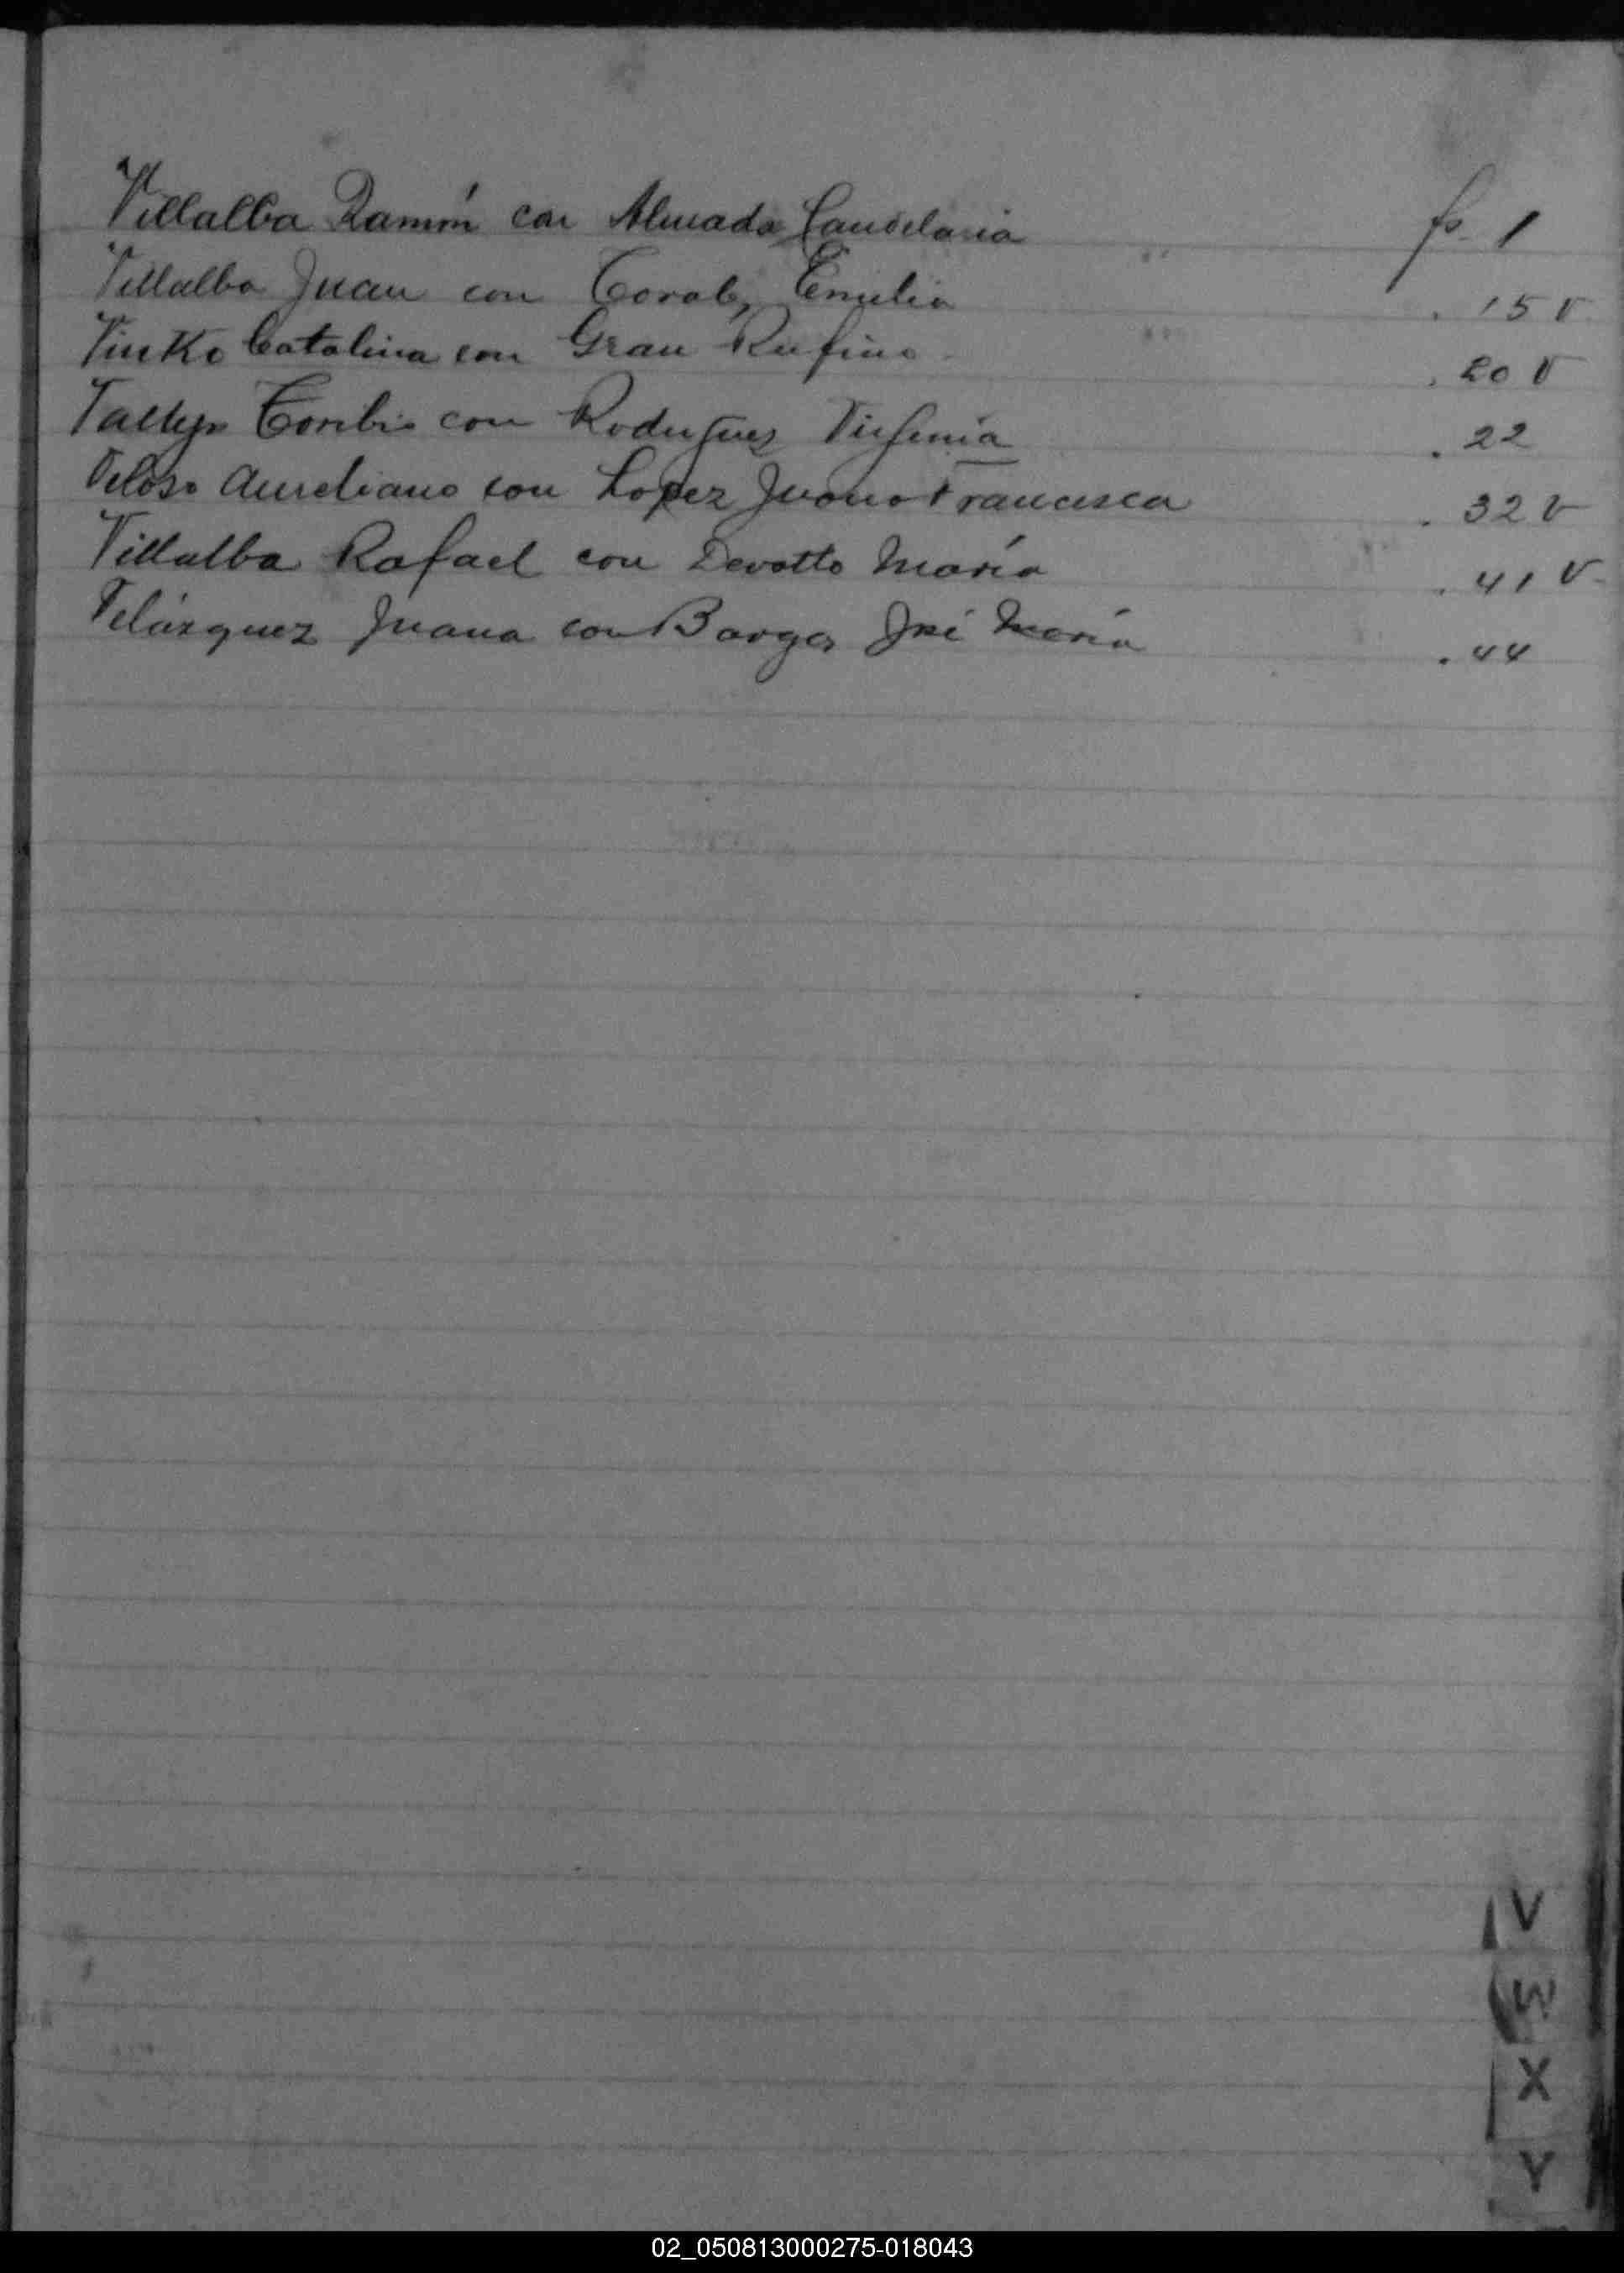 Villalba Ramón con Almada Candelaria fs. 1
Villalba Juan con Emilia . 15 V
Vinko Catalina con Grau Rufino . 20 V
Toribio con Rodriguez Virginia . 22
Veloso Aureliano con Lopez Juana Francisca . 32 V
Villalba Rafael con Devotto María . 41 V
Velázquez Juana con José María . 44
V
W
X
Y
02_050813000275-018043